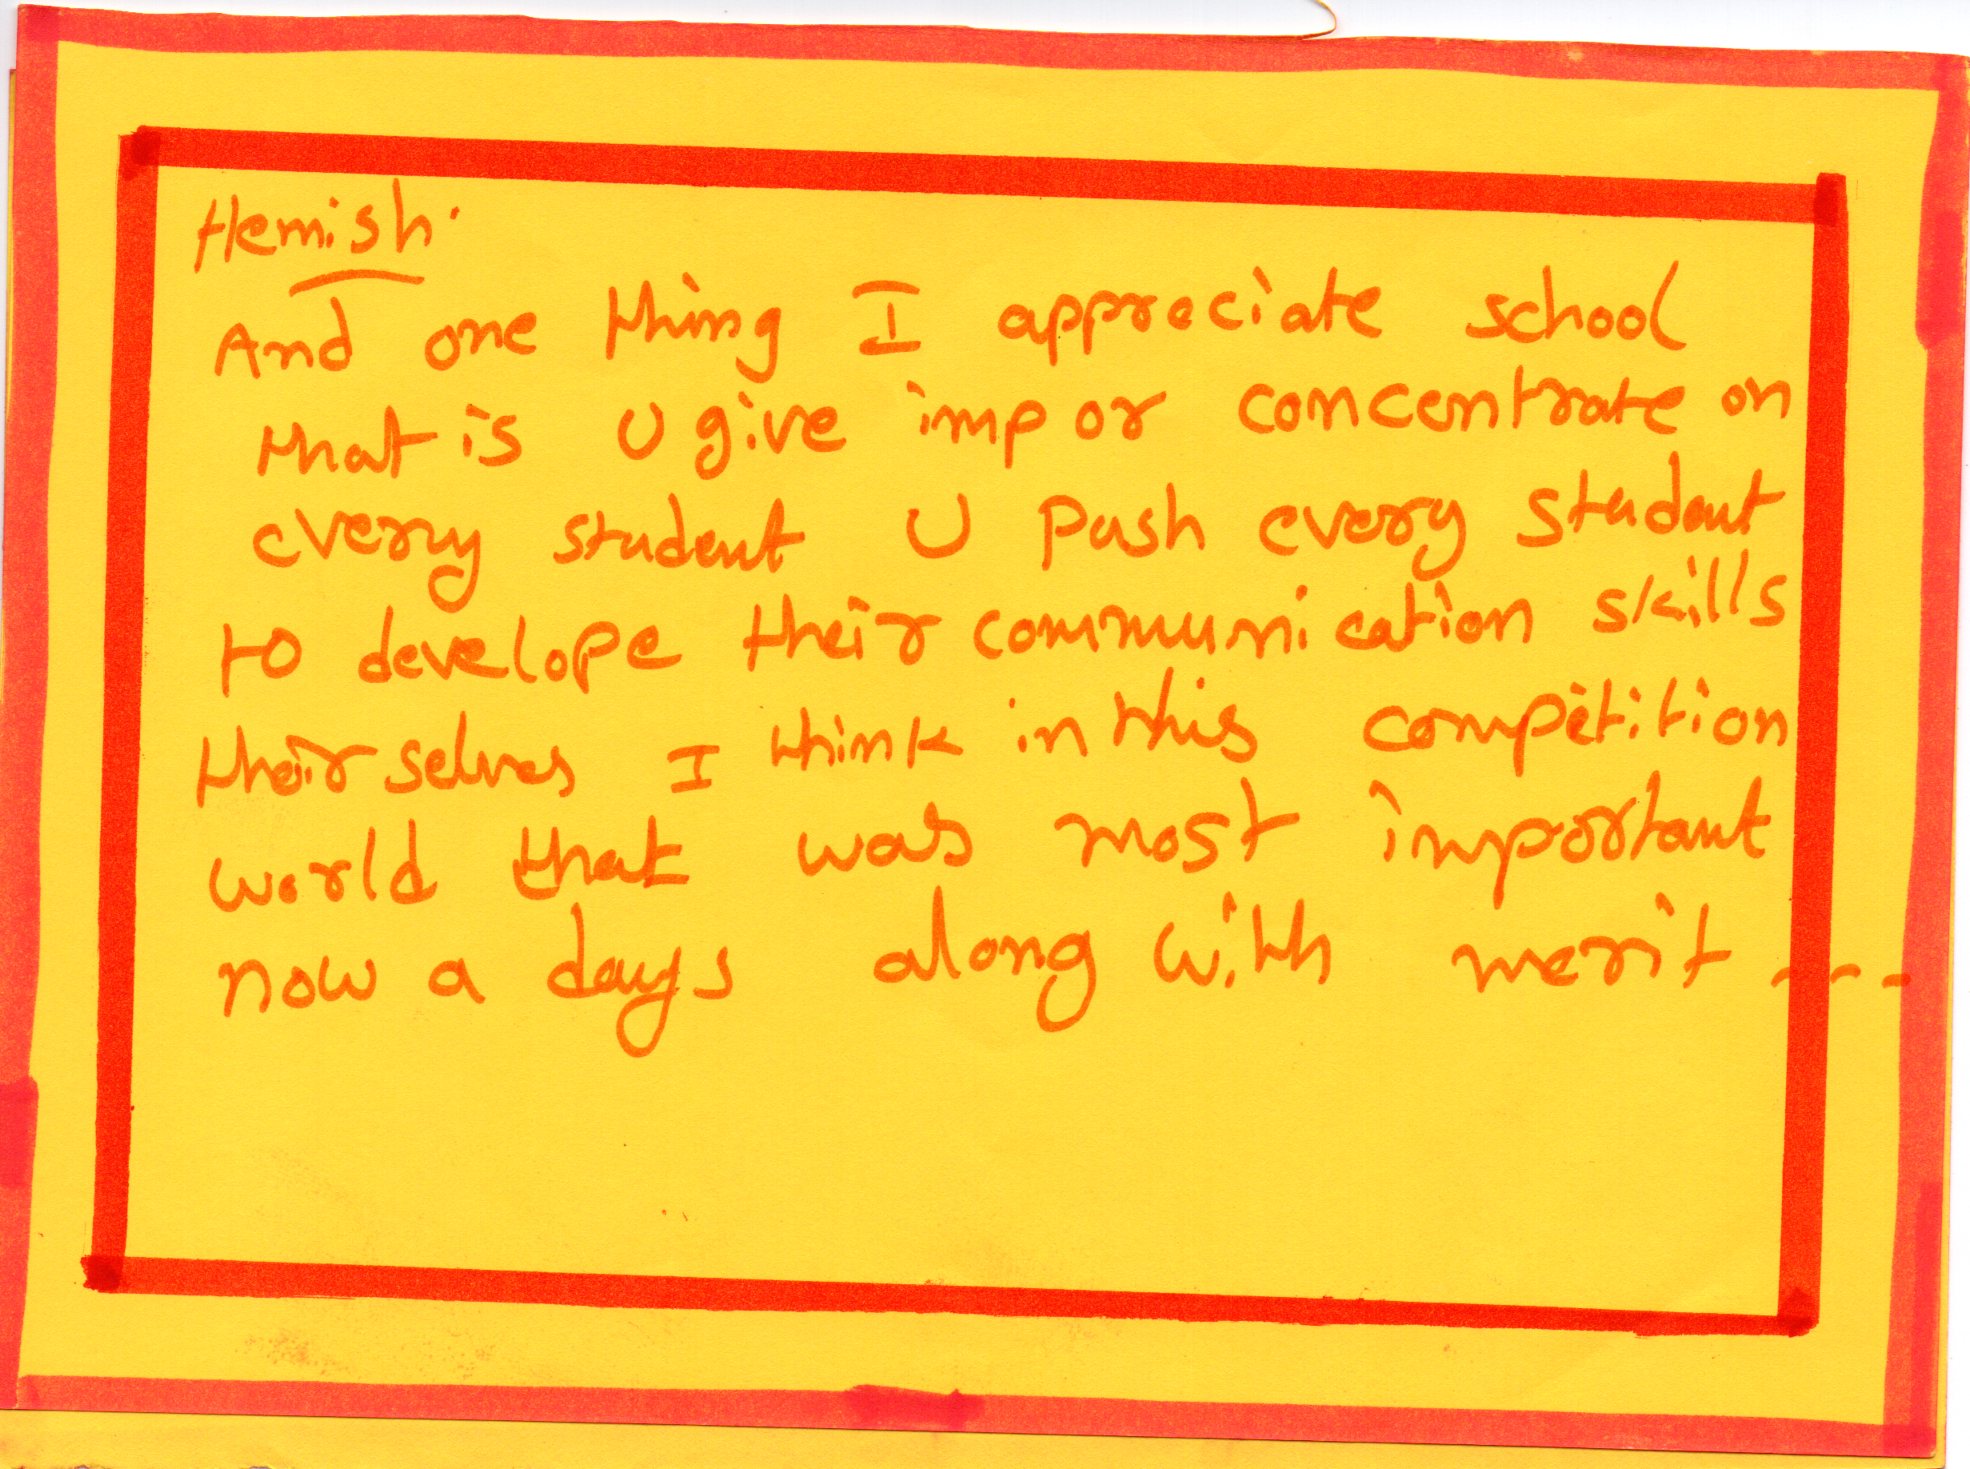 Hemish.
And one thing I appreciate school
that is U give imp or concentrate on
every student U push every student
to develope their communication skills
their selves I think in this competition
world that was most important
now a days along with merit ---